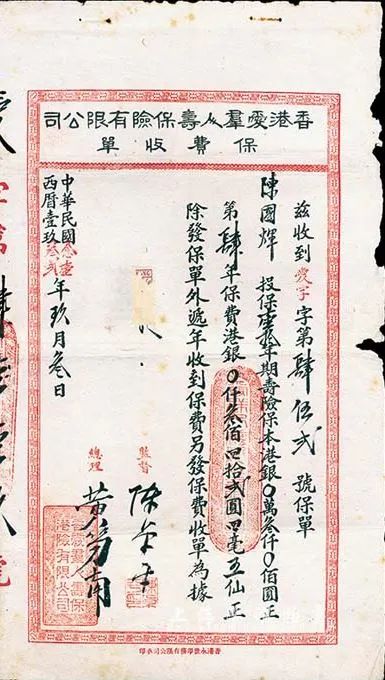 香港愛羣人壽保險有限公司
保費收單
茲收到愛字字第肆伍弍號保單
陳國輝 投保壹拾年期壽險保本港銀〇萬叁仟〇佰圓正
第肆年保費港銀〇仟叁佰四拾弍圓四毫五仙正
除發保單外遞年收到保費另發保費收單為據
監督
總理
中華民國叁壹
西曆壹玖叁弍年玖月叁日
香港永發印務有限公司承印